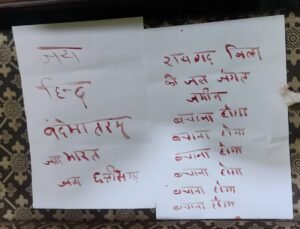 जय
हिन्द
वंदेमातरम्
जय भारत
जय छत्तीसगढ़
रायगढ़ जिला
के जल जंगल
जमीन
बचाना होगा
बचाना होगा
बचाना होगा
बचाना होगा
बचाना होगा
बचाना होगा